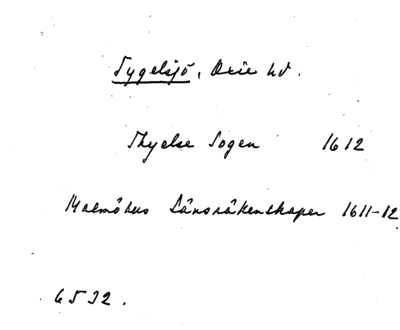 Tygelsjö, Oxie hd.
Thyelse Sogen 1612
Malmöhus Länsräkenskaper 1611-12
6532.